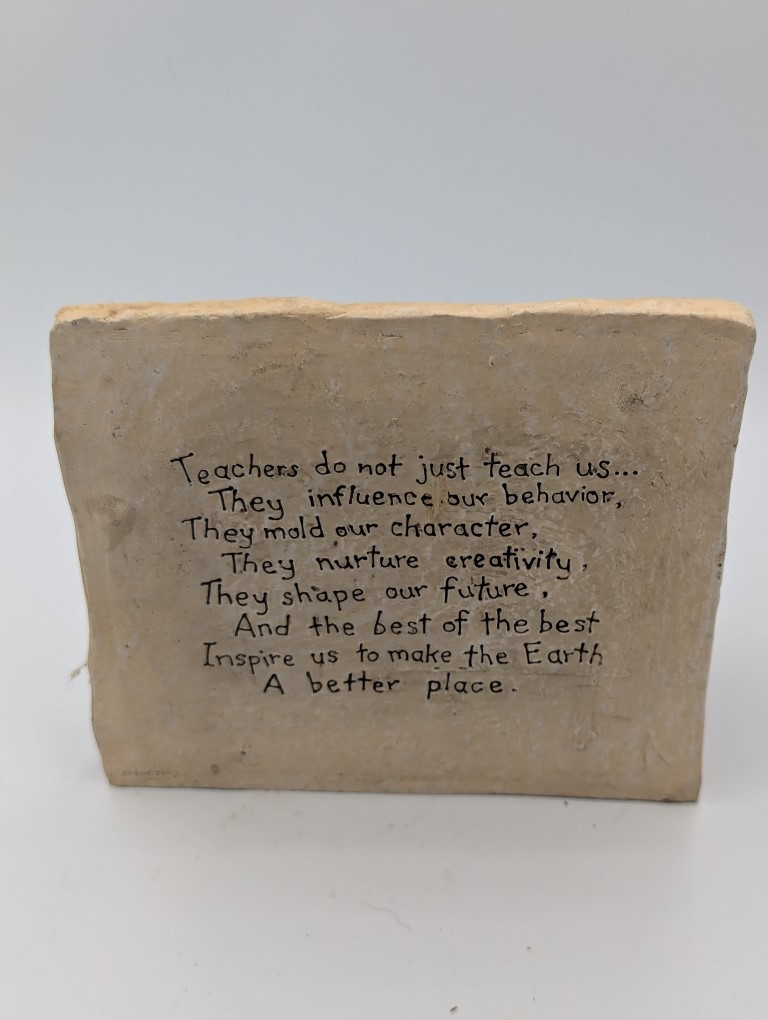 Teachers do not just teach us...
They influence our behavior,
They mold our character,
They nurture creativity,
They shape our future,
And the best of the best
Inspire us to make the Earth
A better place.